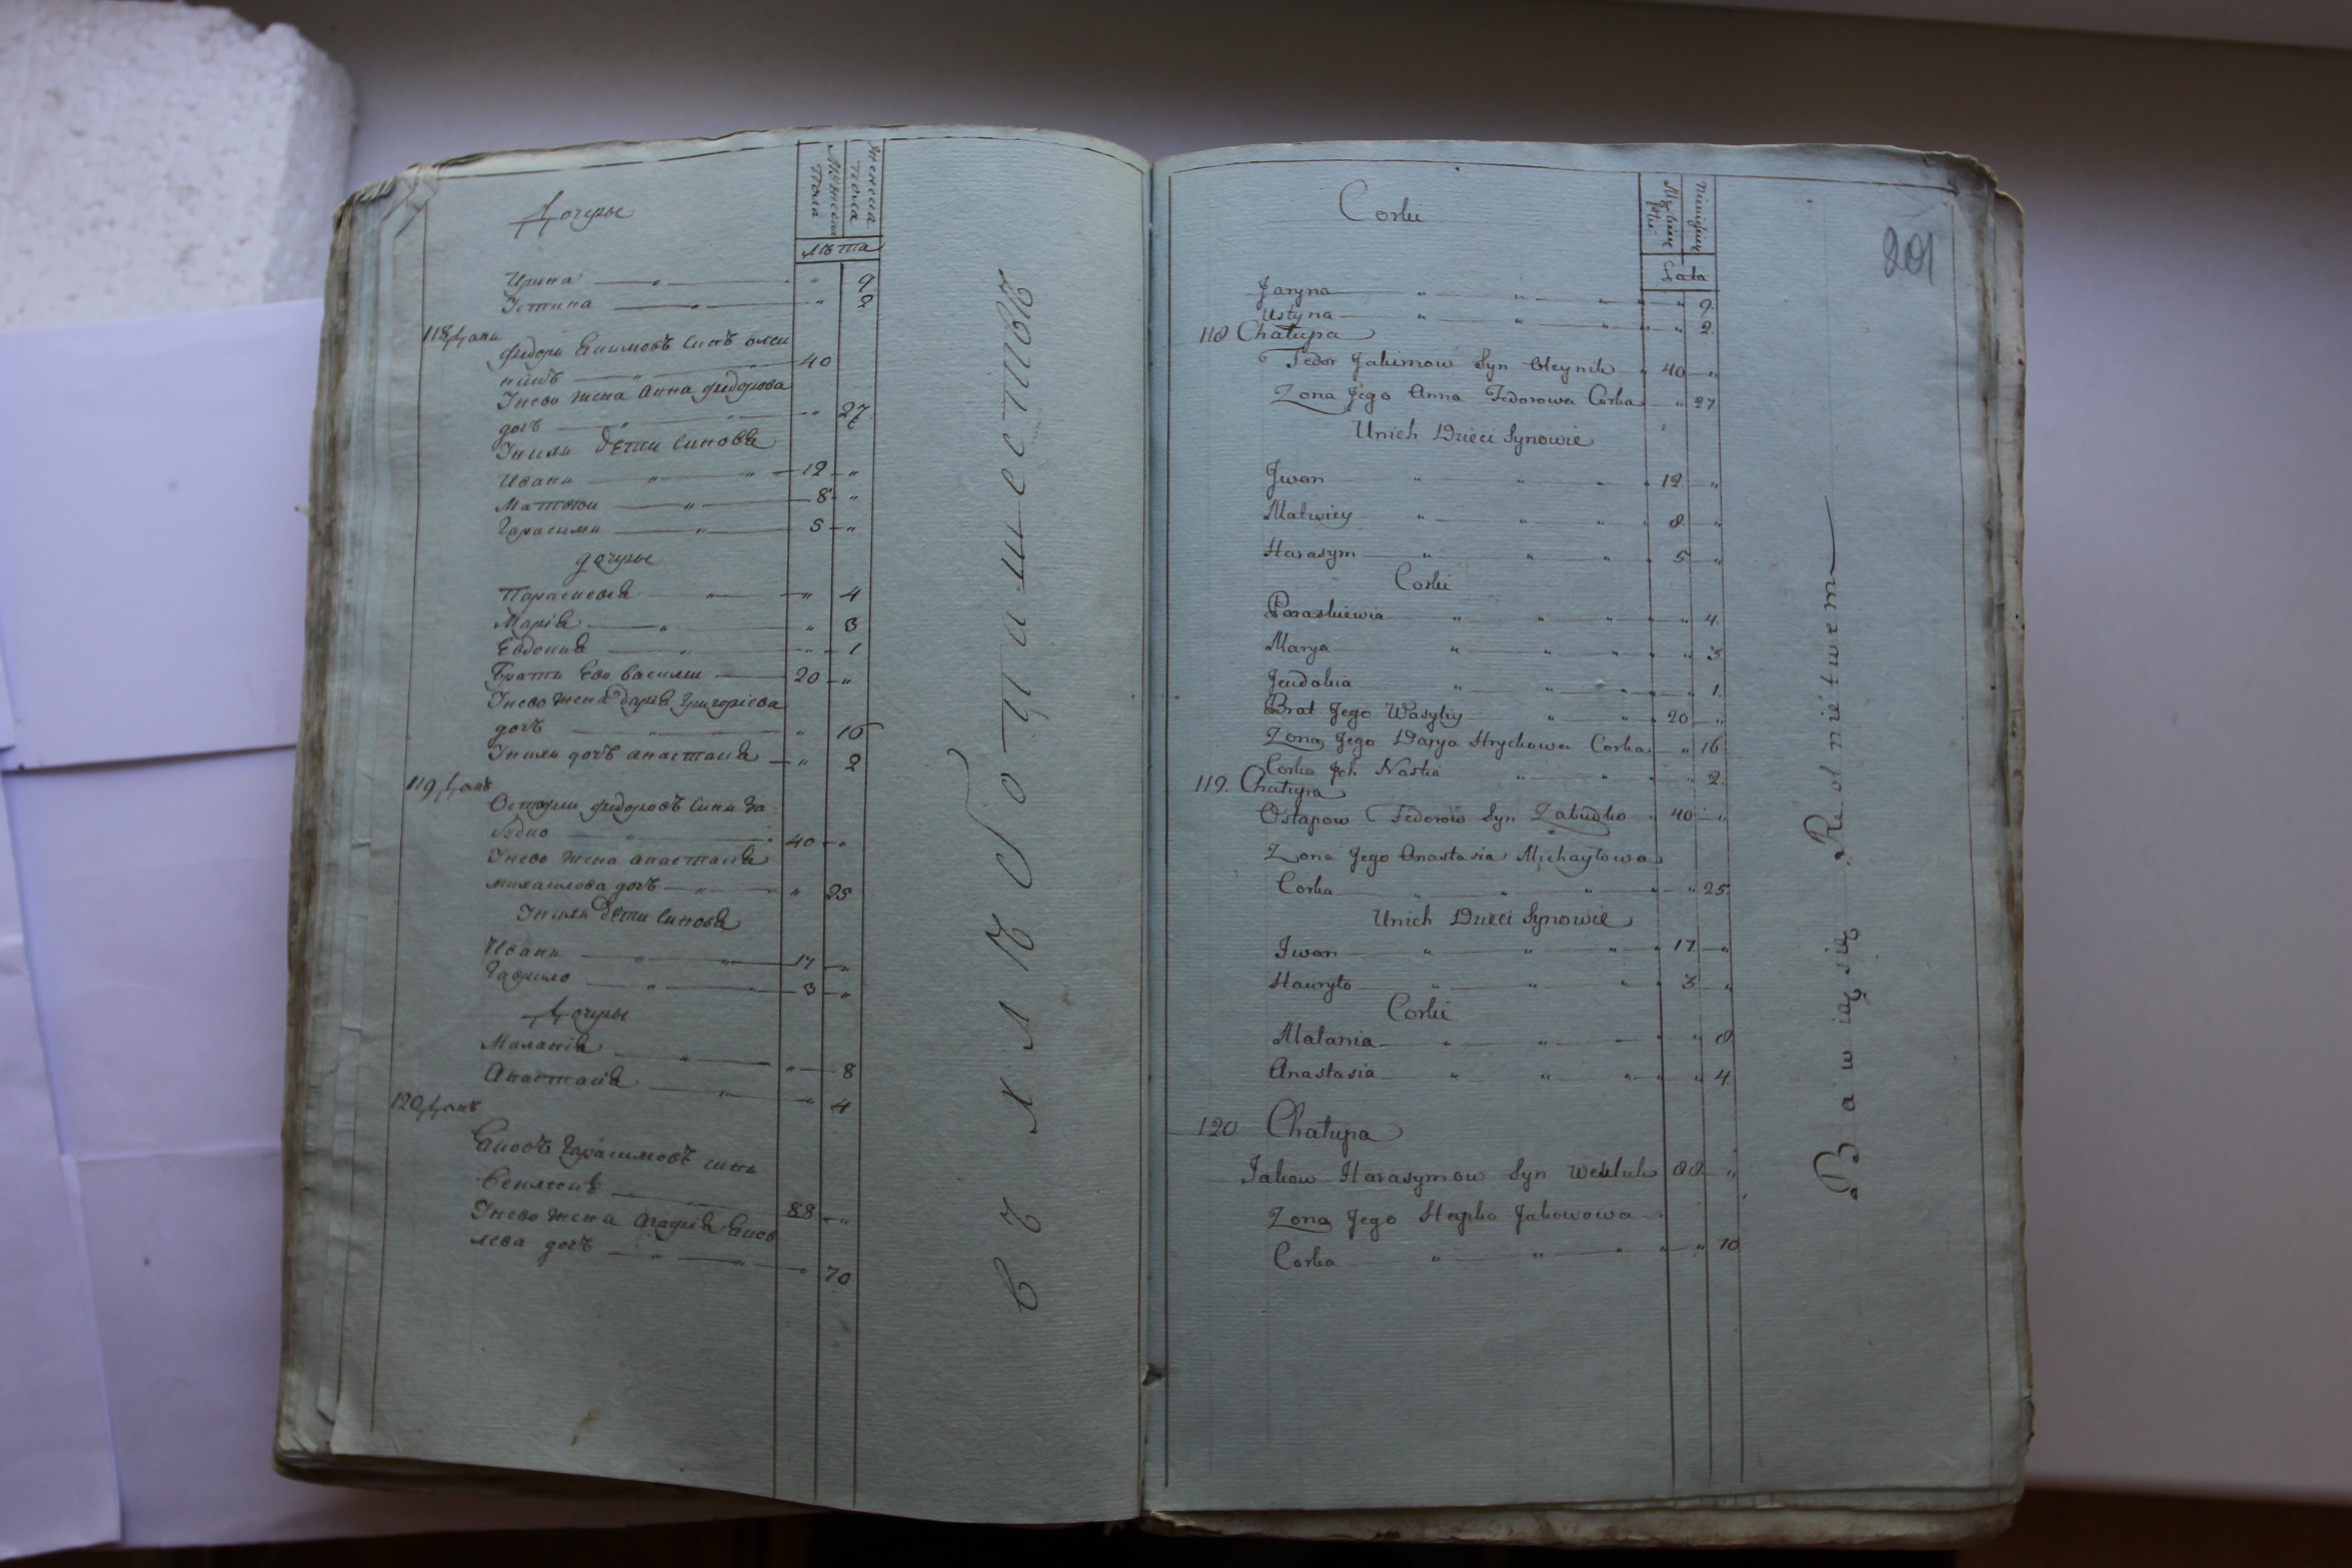 Дочеры
Мужеска пола
Женска пола
лѣта
Ирина " " 9
Іетина " " 2
118 Домъ
Федоръ Екимовъ синъ олей
никъ " 40
Унево жена Анна Федорова
дочъ " " 27
Унихъ дети синовя
Иванъ " " 12 "
Матвіи " 8 "
Гарасимъ " 5 "
дочеры
Парасковя " " 4
Марія " " 3
Евдокия " " 1
Братъ Ево василій 20 "
Унево жена дарія Григоріева
дочъ " " 16
Унихъ дочъ анастасія " 2
119 Домъ
Остапъ Федоровъ синъ За
будко " 40 "
Унево жена анастасія
михаилова дочъ " " 25
Унихъ дети синовя
Иванъ " " 17 "
Гаврило " " 3 "
Дочеры
Маланія " " 8
Анастасія " " 4
120 Домъ
Яковъ Гарасимовъ синъ
Веклюкъ 88 "
Унево жена Агафія Яков
лева дочъ " " " 70
въ хлѣбопашествѣ
201
Corki
Męzkiey płci
Lata
Jaryna " " " " " 9.
Ustyna " " " " " 2.
118 Chałupa
Fedor Jakimow Syn Oleynik " 40 "
Zona Jego Anna Fedorowa Corka " 27
Unich Dzieci Synowie
Jwan " " " " 12 "
Matwiey " " " " 8 "
Harasym " " " " 5 "
Corki
Paraskiewia " " " " " 4.
Marya " " " " " 3
Jeudokia " " " " 1.
Brat Jego Wasyliy " " 20 "
Zona Jego Darya Hrychowa Corka " 16
Corka Jch Nastia " " " 2.
119. Chałupa
Ostapow Fedorow Syn Zabudko " 40 "
Zona Jego Anastasia Michayłowa
Corka " " " " " 25.
Unich Dzieci Synowie
Jwan " " " " 17 "
Hauryło " " " " 3 "
Corki
Małania " " " " 8
Anastasia " " " " " 4.
120 Chałupa
Jakow Harasymow Syn Wekluk 88 "
Zona Jego Hapka Jakowowa
Corka " " " " " 70
Bawiąsię Rolnictwem